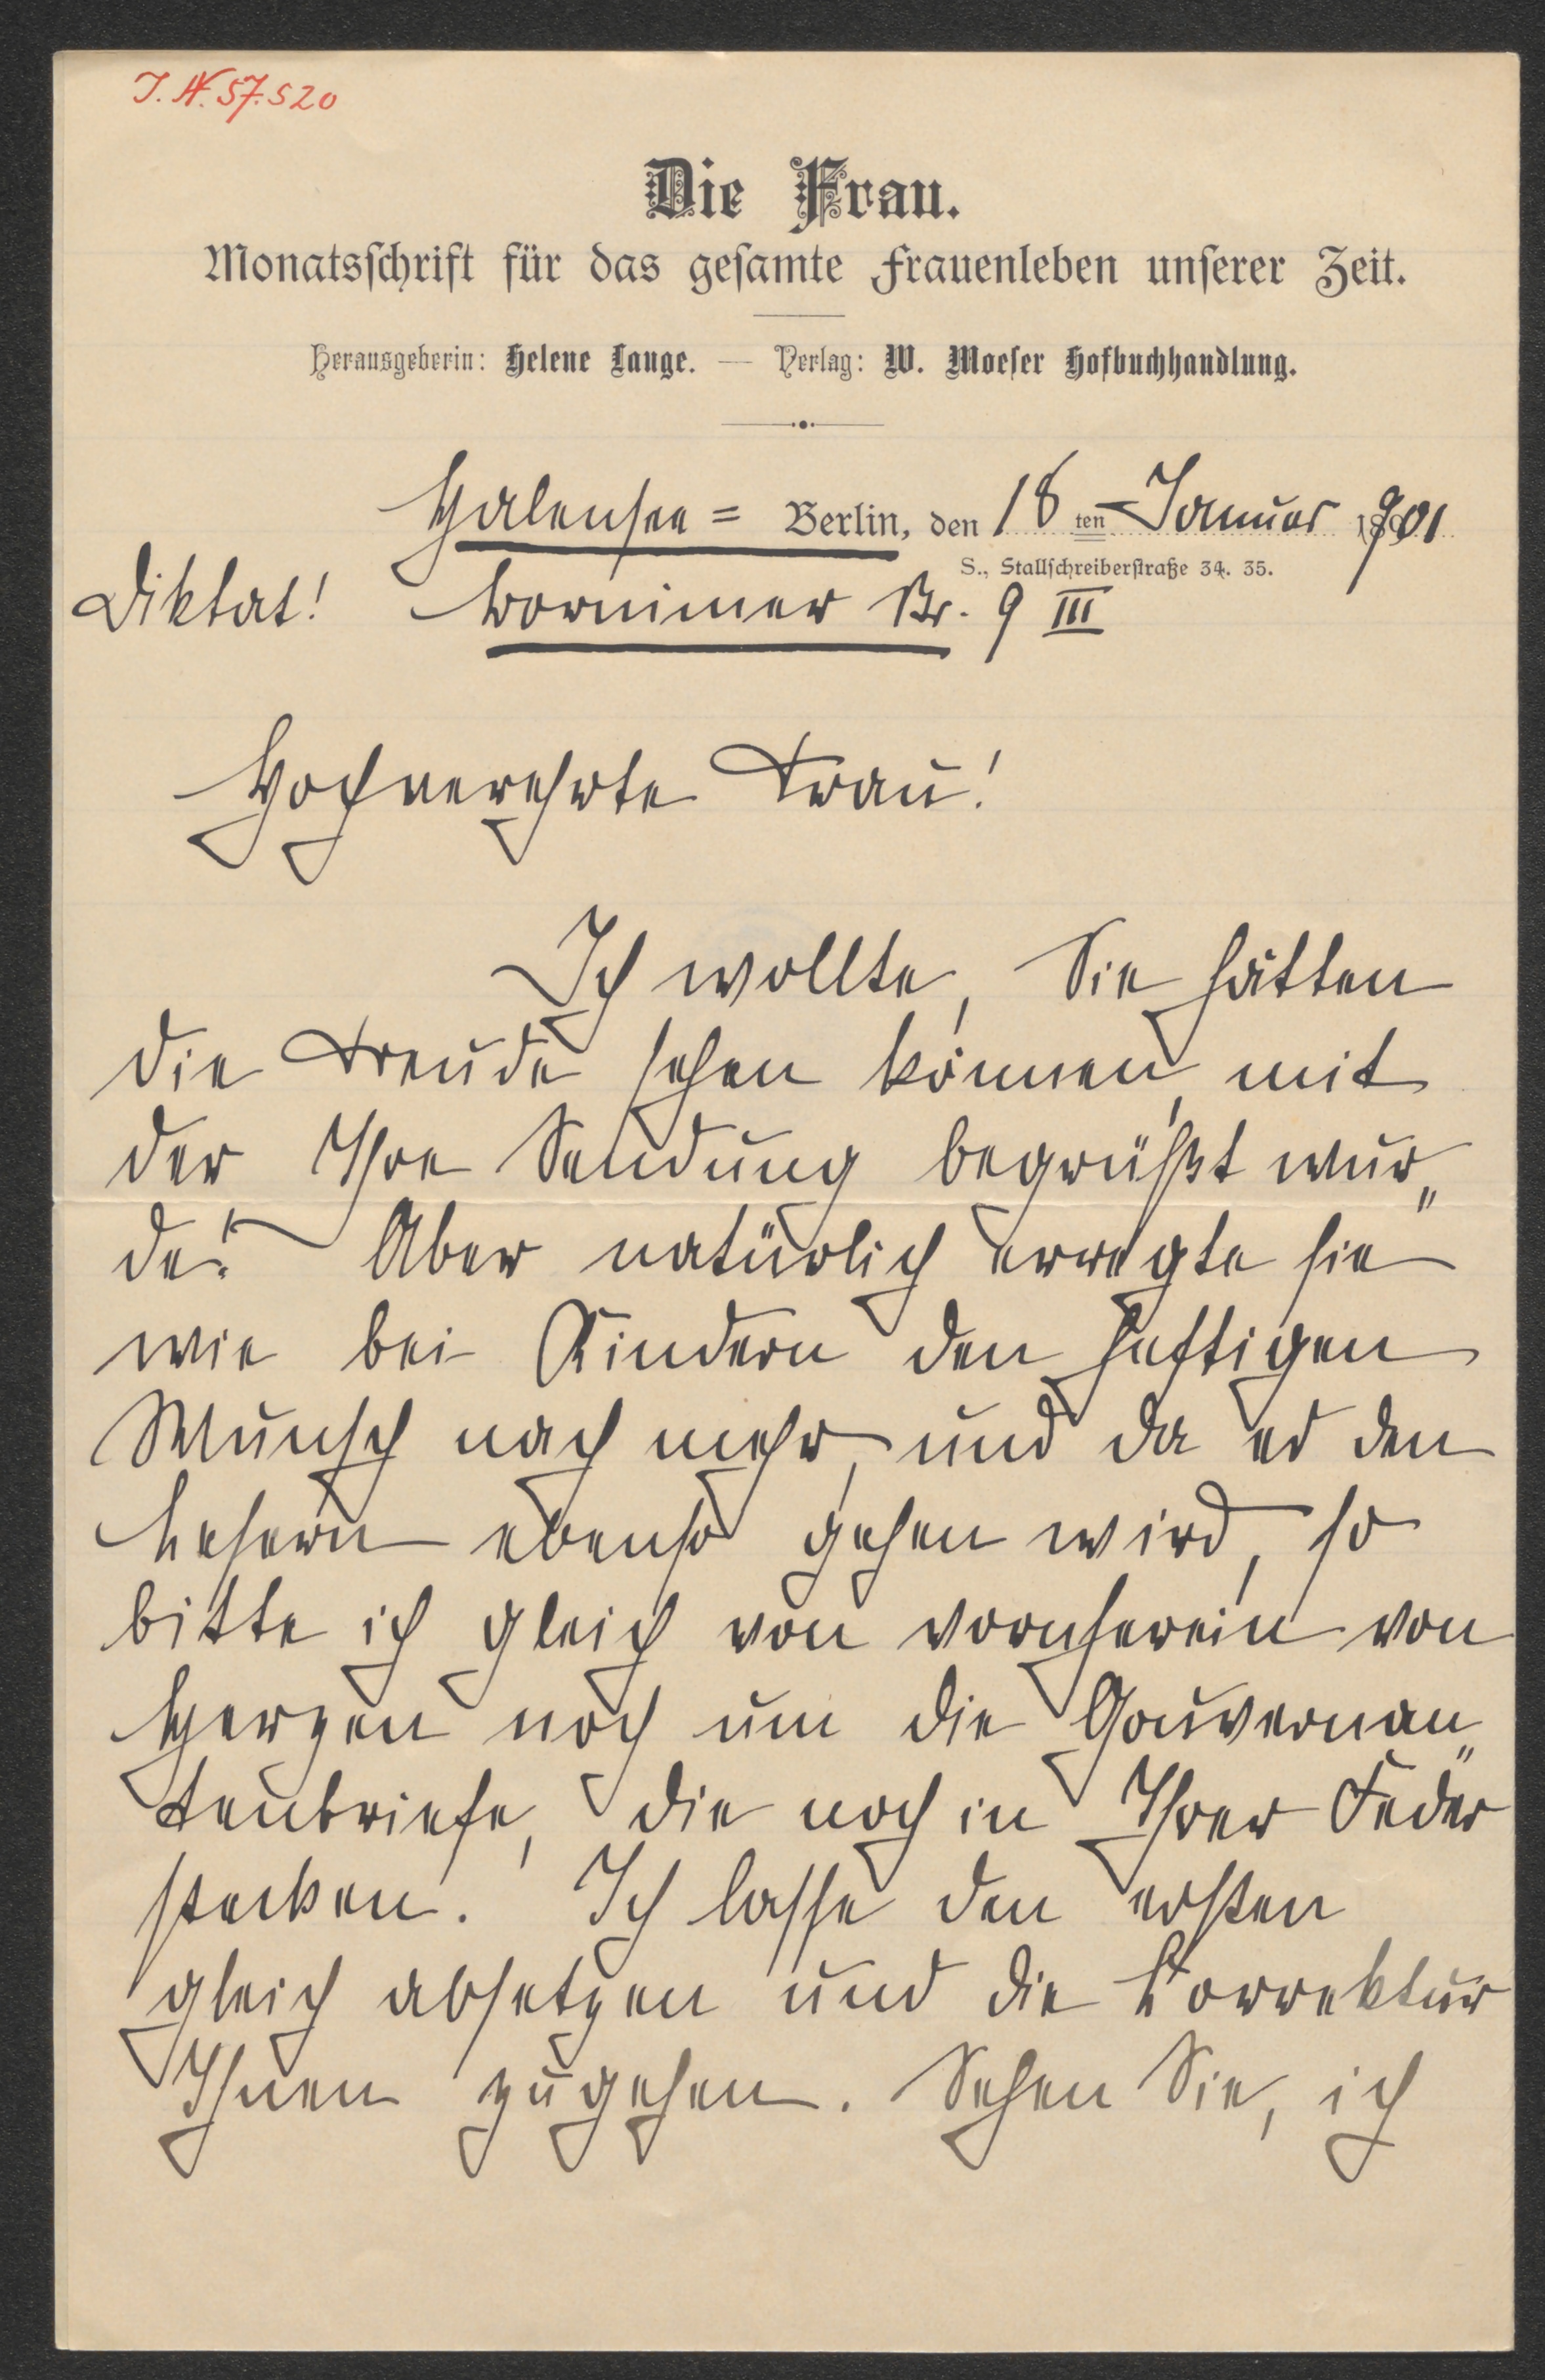 J. N. 57.520
Die Frau.
Monatsschrift für das gesamte Frauenleben unserer Zeit.
Herausgeberin: Helene Lange. — Verlag: W. Moeser Hofbuchhandlung.
Halensee = Berlin, den 18 ten Januar 1901
S., Stallschreiberstraße 34. 35.
Diktat! Bornimer Str. 9 III
Hochverehrte Frau!
Ich wollte, Sie hätten
die Freude sehen können, mit
der Ihre Sendung begrüßt wur„
de! Aber natürlich erregte sie
wie bei Kindern den heftigen
Wunsch nach mehr, und da es den
Lesern ebenso gehen wird, so
bitte ich gleich von vornherein von
Herzen noch um die Gouvernan„
tenbriefe, die noch in Ihrer Feder
stecken. Ich lasse den ersten
gleich absetzen und die Correktur
Ihnen zugehen. Sehen Sie, ich